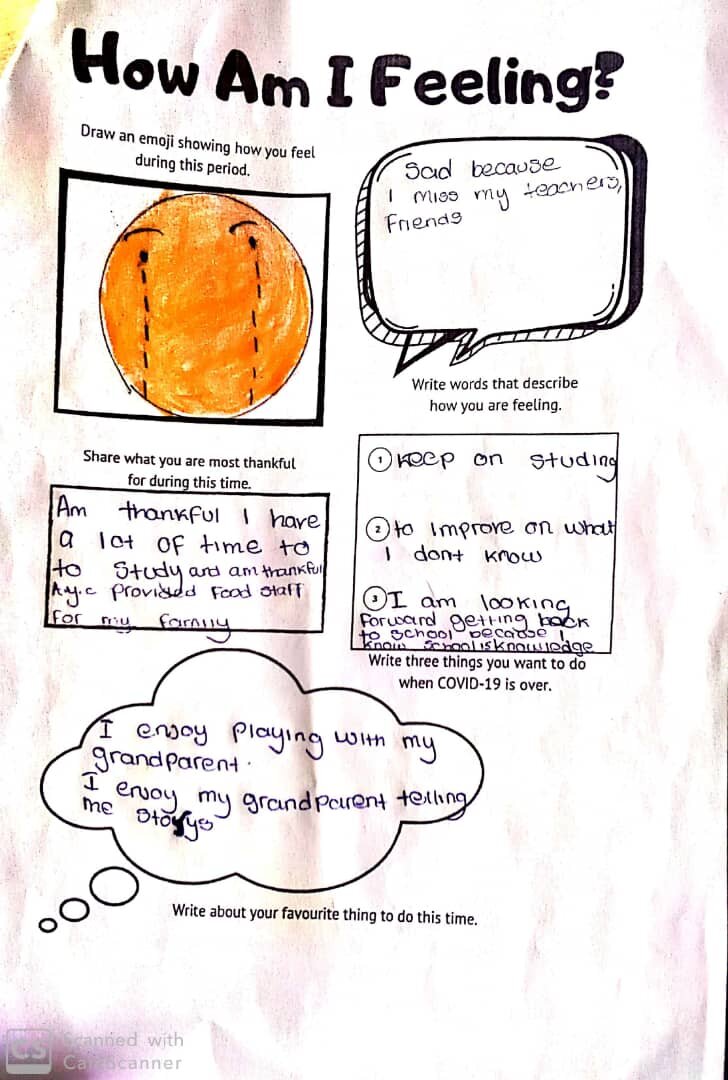 How Am I Feeling?
Draw an emoji showing how you feel
during this period.
Sad because
I miss my teachers,
Friends
Write words that describe
how you are feeling.
Share what you are most thankful
for during this time.
Am thankful I have
a lot of time to
to study and am thankful
A.y.c provided Food staff
for my family
1 Keep on studing
2 to improve on what
I dont know
3 I am looking
forward getting back
to school because I
know school is knowledge
Write three things you want to do
when COVID-19 is over.
I enjoy playing with my
grandparent.
I enjoy my grandparent telling
me storys
Write about your favourite thing to do this time.
CS Scanned with
CamScanner